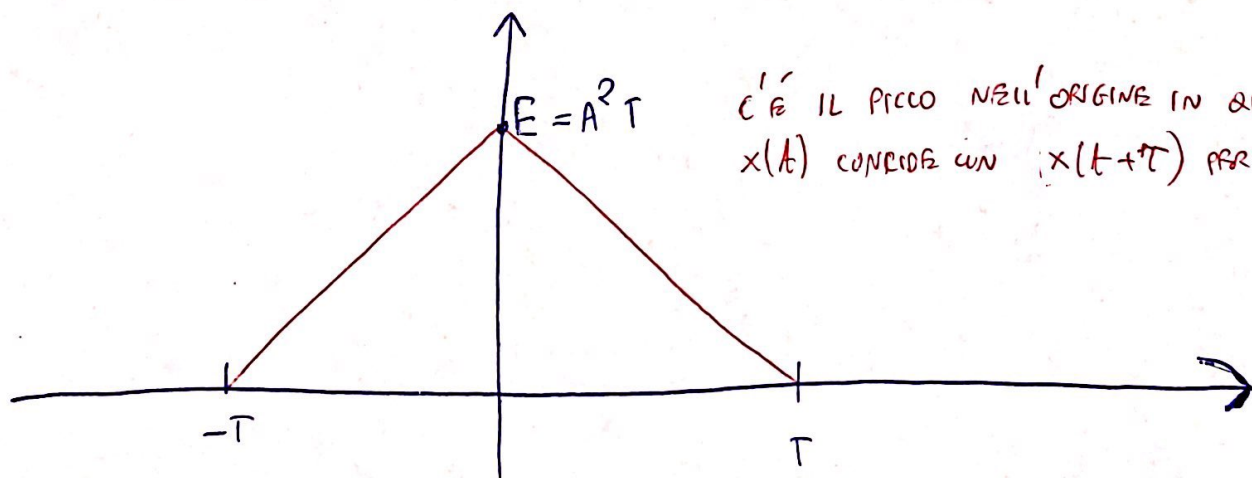 E = A² T
C'È IL PICCO NELL'ORIGINE IN
x(t) COINCIDE CON x(t+τ) PER
-T
T